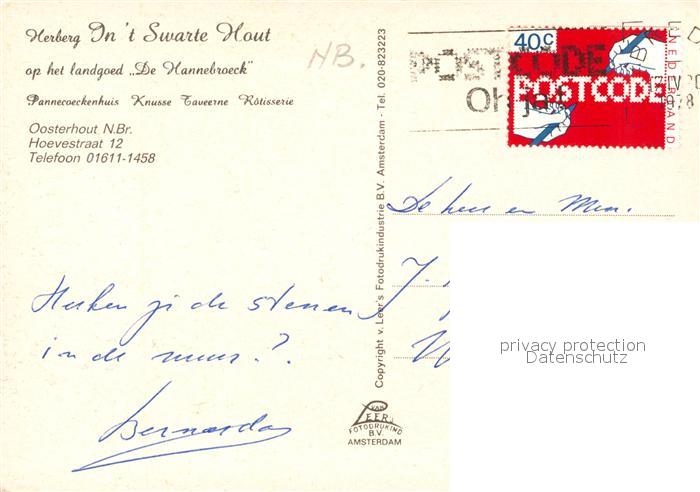 Herberg In 't Swarte Hout
op het landgoed „De Hannebroeck”
Pannecoeckenhuis Knusse Taveerne Rôtisserie
Oosterhout N.Br.
Hoevestraat 12
Telefoon 01611-1458
NB.
Herken je de stenen
in de muur?.
Bernarda
Copyright v. Leer's Fotodrukindustrie B.V. Amsterdam - Tel. 020-823223
VAN
LEER'S
FOTODRUKIND
B.V.
AMSTERDAM
POSTCODE
Oh ja
40c
NEDERLAND
POSTCODE
1978
De heer en Mevr.
J.
privacy protection
Datenschutz